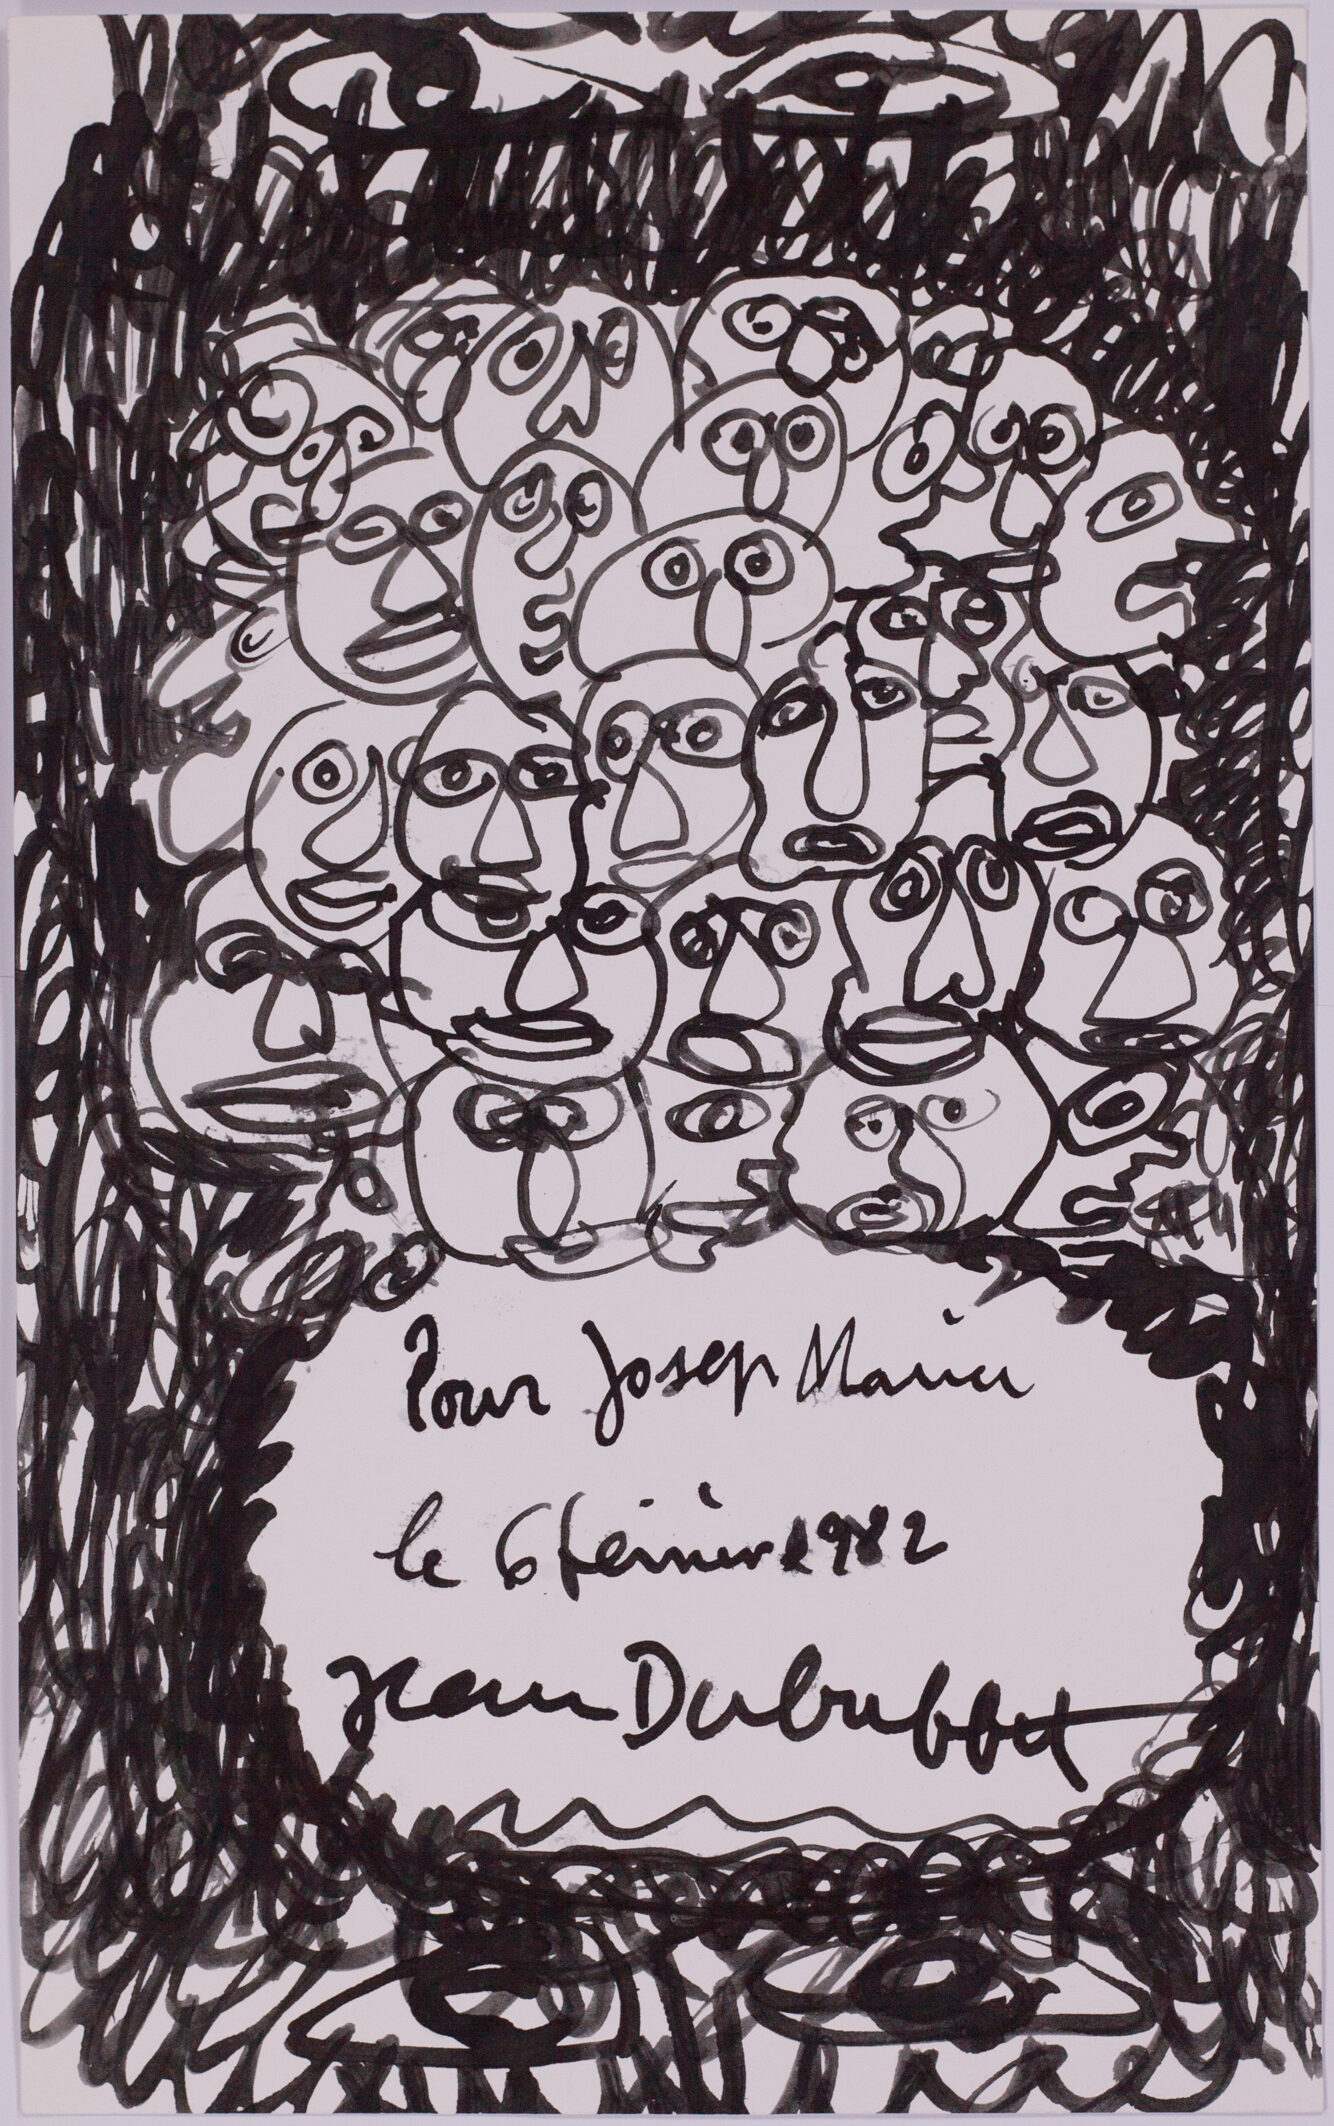 Pour Josep Maria
le 6 février 1982
Jean Dubuffet